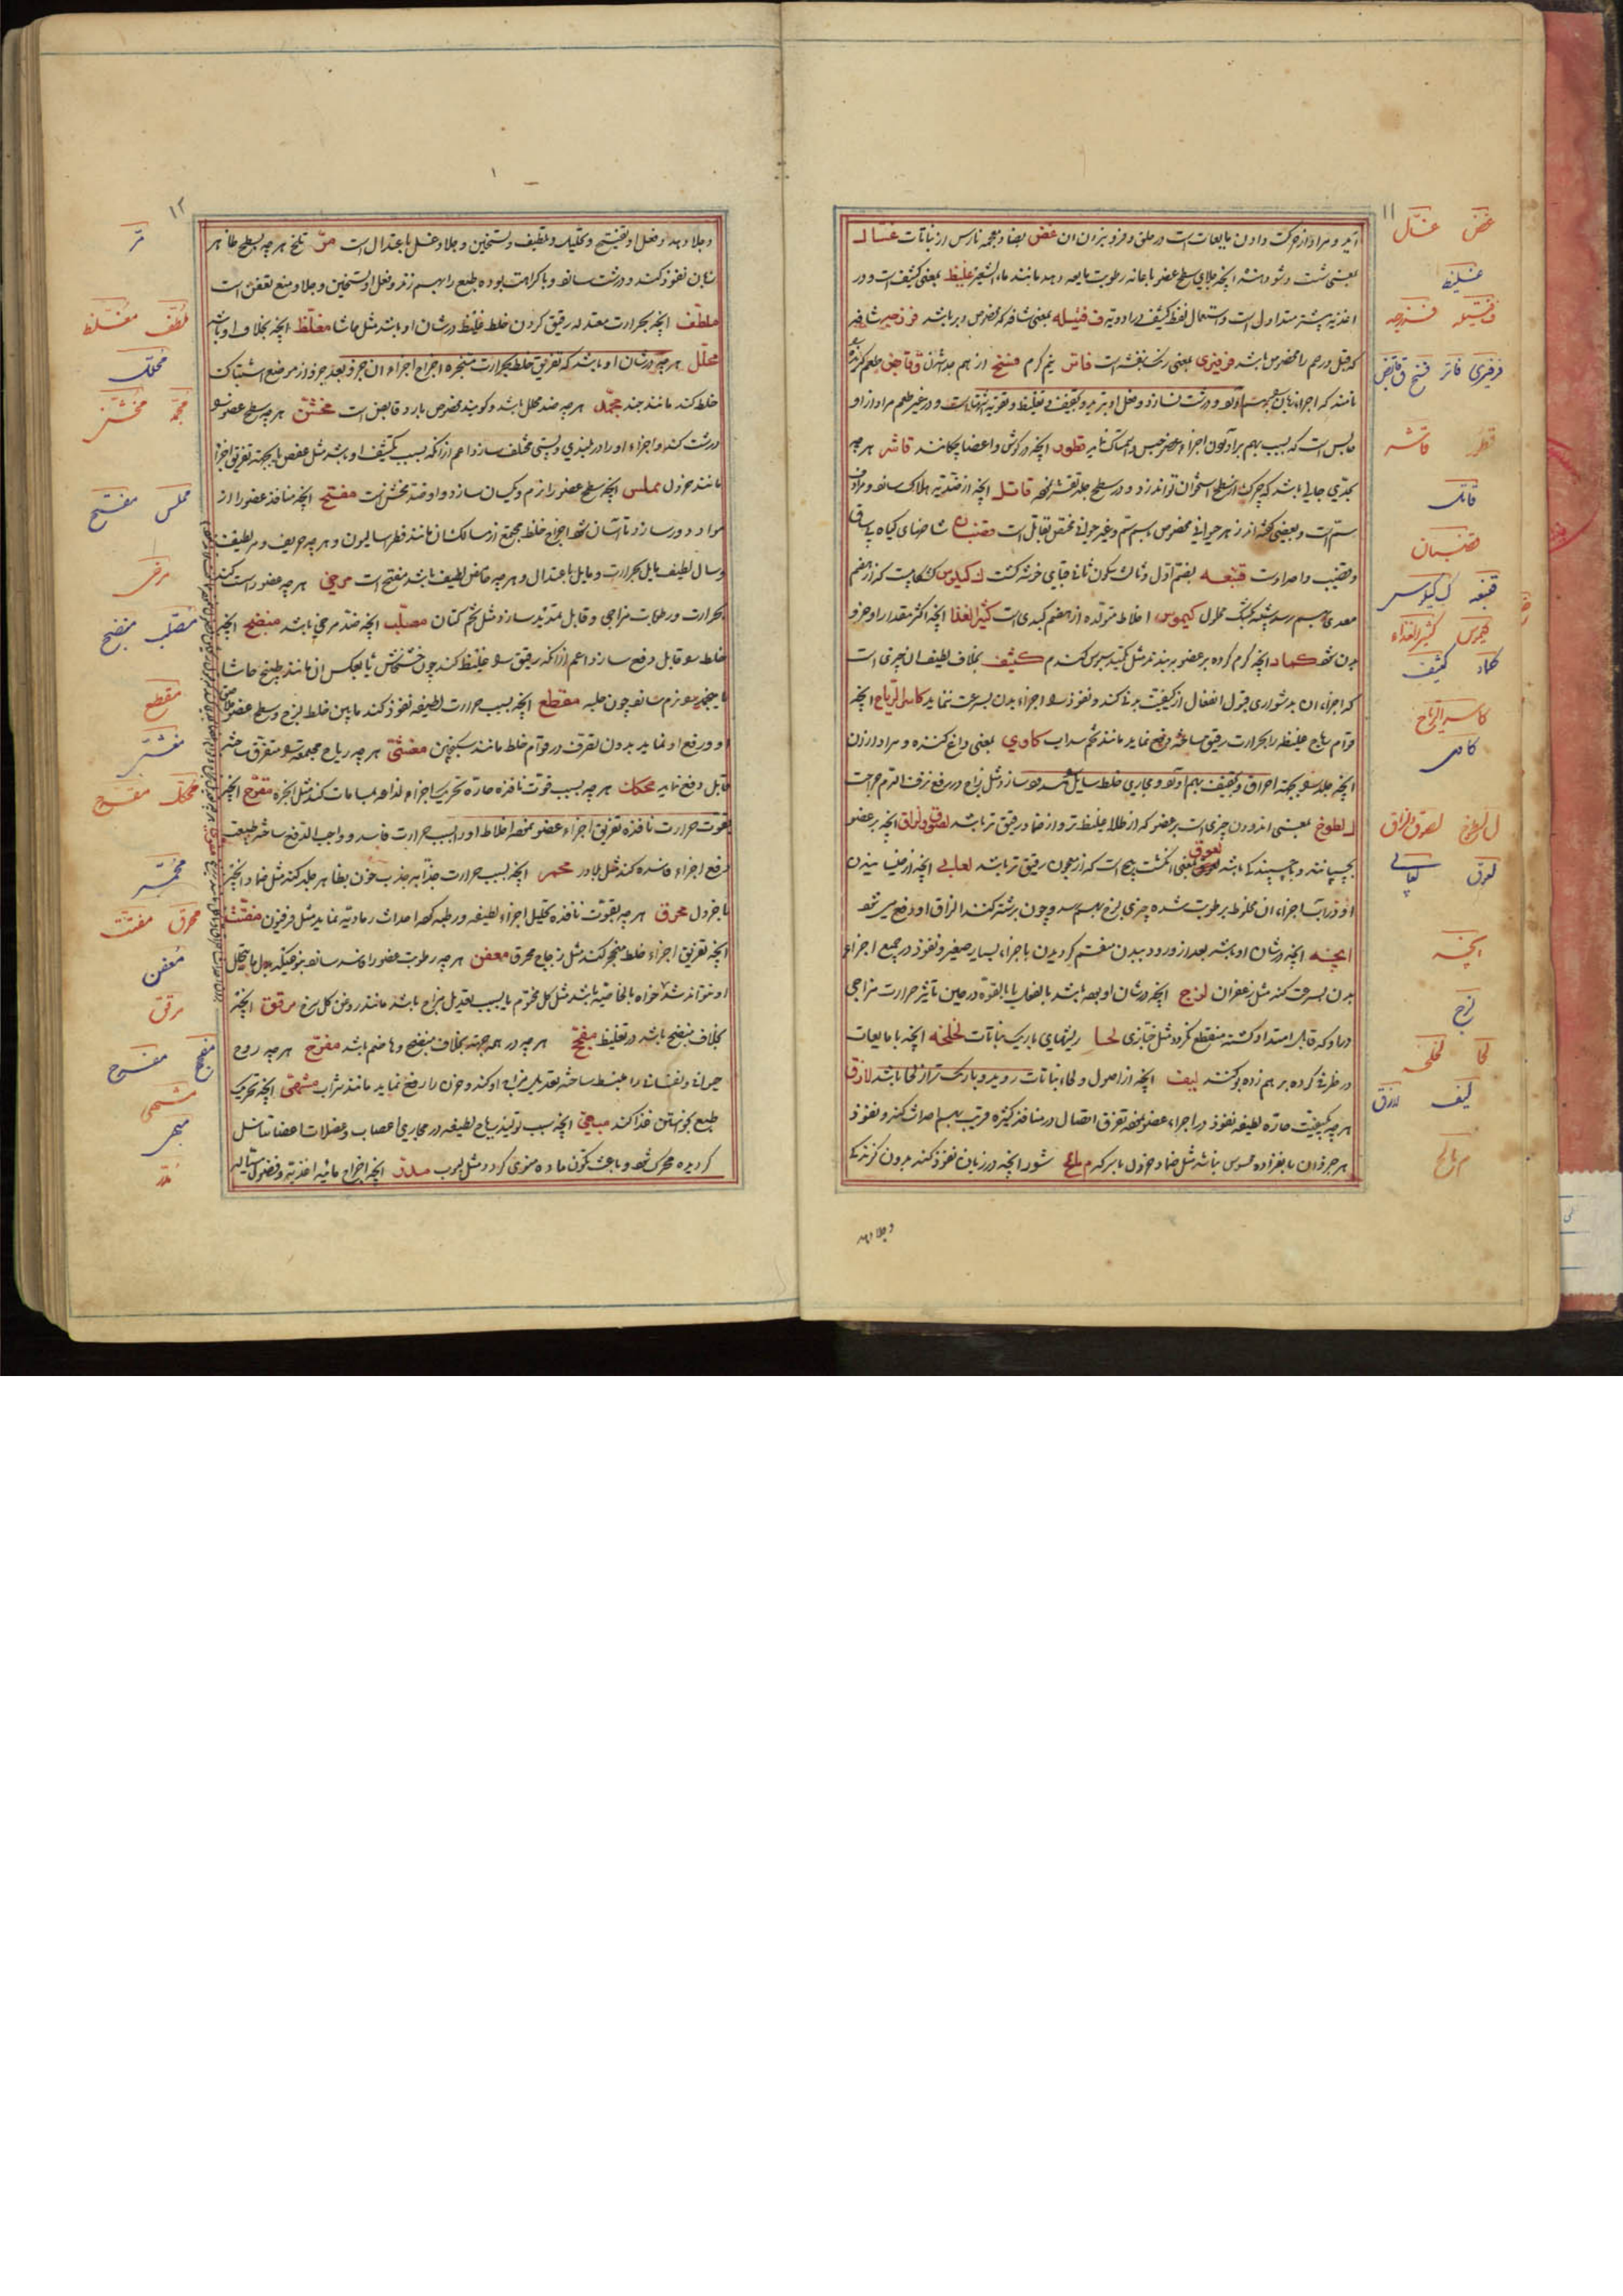 غض غسّال
غلیظ
ف فتیله فرزجه
فرفیری فاتر فسخ ق قابض
قطور قاشر
قاتل
قضبان
قنبعه ک کیلوس
کیموس کثیر الغذاء
کماد کثیف
کاسر الریاح
کاوی
ل لطوخ لصوق لزاق
لعوق لعابی
لزج
لحا لخلخه
لیف لاذع
م مالح
۱۱
آید و مراد از حرکت دادن مایعات است در حلق و فرو بردن آن غض بضاد معجمه نارس از نباتات غسال
بمعنی شست و شو دهنده آنچه جلای سطح عضو با اعانه رطوبت مایعه دهد مانند ماء الشعیر غلیظ بمعنی کثیف است و در
اغذیه بیشتر متداول است و استعمال لفظ کثیف در ادویه ف فتیله بمعنی شافه که مخصوص دبر باشد فرزجه شافه
که قبل و رحم را مخصوص باشد فرفیری بمعنی رنگ بنفش است فاتر نیم گرم فسخ از هم جدا شدن ق قابض
حابس است که بسبب بهم برآوردن اجزاء عضو حبس و امساک نماید قطور آنچه در گوش و اعضا چکانند قاشر هر چه
بحدی جالی باشد که چرک از سطح استخوان تواند زدود و در سطح جلد تقشر بخشد قاتل آنچه از ضدیت هلاک سازد و مراد
سم است و بعضی گفته‌اند زهر حیوانی مخصوص بسم و غیر حیوانی مختص بقاتل است قضبان شاخهای گیاه بی ساق
و قضیب واحد اوست قنبعه بضم اول و ثالث و سکون ثانی قبای خوشه گشت ک کیلوس کشکاب است که از هضم
معدی بهم رسد شبیه بکشک محلول کیموس اخلاط متولده از هضم کبدی است کثیر الغذا آنچه اکثر مقدار او جزو
بدن شود کماد آنچه گرم کرده بر عضو بندند مثل کیسه سبوس گندم کثیف بخلاف لطیف آن چیزی است
که اجزاء آن بدشواری قبول انفعال از کیفیت بدن کند و نفوذ در اجزاء بدن بسرعت ننماید کاسر الریاح آنچه
قوام ریاح غلیظ را بحرارت رقیق ساخته دفع نماید مانند تخم سداب کاوی بمعنی داغ کننده و مراد از آن
آنچه جلد را بجهة احراق و تجفیف بهم آورد و مجاری خلط سایل را مسدود سازد مثل زاج در رفع نزف الدم جراحت
ل لطوخ بمعنی اندودن چیزی است بر عضو که از طلا غلیظ‌تر و از ضماد رقیق‌تر باشد لصوق و لزاق آنچه بر عضو
بچسپانند و یا چسپنده باشد لعوق بمعنی انگشت پیچ است که از معجون رقیق‌تر باشد لعابی آنچه از خیسانیدن
او در آب اجزاء آن مخلوط برطوبت شده چیزی لزج بهم رسد و چون برشته کنند الزاق او رفع می شود
آنچه در شان او باشد بعد از ورود ببدن منقسم گردیدن باجزاء بسیار صغیر و نفوذ در جمیع اجزاء
بدن بسرعت کند مثل زعفران لزج آنچه در شان او بوده باشد بالفعل یا بالقوه در حین تاثیر حرارت مزاجی
در او که قابل امتداد گشته منقطع نگردد مثل خبازی لحا ریشهای باریک نباتات لخلخه آنچه با مایعات
در ظرفی کرده بر هم زده بو کنند لیف آنچه از اصول و لحاء نباتات روید و باریک‌تر از لحا باشد لاذع
هر چه بکیفیت حاده لطیفه نفوذ در اجزاء عضو نموده تفرق اتصال در منافذ کثیره قریب بهم احداث کند و نفوذ
هر جزو آن بانفراده محسوس نباشد مثل ضماد خردل با سرکه م مالح شور آنچه در زبان نفوذ کند بدون گزندگی
و جلا دهد
۱۲
و جلا دهد و فعل او تفتیح و تحلیل و تلطیف و تسخین و جلا و غسل باعتدال است مرّ تلخ هر چه بسطح ظاهر
زبان نفوذ کند و درشت سازد و با کراهت بوده طبع را بهم زند و فعل او تسخین و جلا و منع تعفن است
ملطف آنچه بحرارت معتدله رقیق کردن خلط غلیظ در شان او باشد مثل حاشا مغلّظ آنچه بخلاف او باشد
محلّل هر چه در شان او باشد که تفریق خلط بحرارت متبخره اخراج اجزاء آن جزو بعد جزو از موضع اشتباک
خلط کند مانند جند مجمّد هر چه ضد محلل باشد و گویند مخصوص بارد قابض است مخشّن هر چه سطح عضو را
درشت کند و اجزاء او را در بلندی و پستی مختلف سازد اعم از آنکه بسبب تکثیف او باشد مثل عفص یا بجهة تفریق اجزا
مانند خردل مملس آنچه سطح عضو را نرم و یکسان سازد و او ضد مخشن است مفتح آنچه منافذ عضو را از
مواد دور سازد تا آسان شود اخراج خلط مجتمع از مسالک آن مانند فطراسالیون و هر چه حریف و مر لطیف
و سیال لطیف مایل بحرارت و مایل باعتدال و هر چه حامض لطیف باشد مفتح است مرخی هر چه عضو را سست کند
بحرارت و رطوبات مزاجی و قابل تمدید سازد مثل تخم کتان مصلّب آنچه ضد مرخی باشد منضج آنچه
خلط را قابل دفع سازد اعم از آنکه رقیق را غلیظ کند چون خشخاش یا بعکس آن مانند طبیخ حاشا
یا منجمد را نرم سازد چون حلبه مقطع آنچه بسبب حرارت لطیفه نفوذ کند مابین خلط لزج و سطح عضو
او و رفع او نماید بدون تصرف در قوام خلط مانند سکنجبین مفشّی هر چه ریاح مجتمعه را متفرق ساخته
قابل دفع نماید محکک هر چه بسبب قوت نافذه حاده تحریک اجزاء لذاعه بمسامات کند مثل انجره مقرّح آنچه
بقوت حرارت نافذه تفریق اجزاء عضو نموده اخلاط او را بسبب حرارت فاسد و واجب الدفع ساخته
رفع اجزاء فاسده کند مثل بلادر محمر آنچه بسبب حرارت جذابه جذب خون بظاهر جلد کند مثل ضماد انجیر
با خردل محرق هر چه بقوت نافذه تحلیل اجزاء لطیفه و رطبه کرده احداث رمادیه نماید مثل فرفیون مفتّت
آنچه تفریق اجزاء خلط متحجر کند مثل زجاج محرق معفن هر چه رطوبت عضو را فاسد سازد بنوعیکه
او نتواند شد خواه بالخاصیه باشد مثل گل مختوم یا بسبب تعدیل مزاج باشد مانند روغن گل سرخ مرقق آنچه
بخلاف منضج باشد در تغلیظ مفجّج هر چه در همه جهة بخلاف منضج و هاضم باشد مفرّح هر چه روح
حیوانی و نفسانی را منبسط ساخته تعدیل مزاج او کند و حزن را رفع نماید مانند شراب مشهّی آنچه تحریک
طبع بخواستن غذا کند مبهّی آنچه سبب تولید ریاح لطیفه در مجاری اعصاب و عضلات اعضا تناسل
گردیده محرک شود و باعث تکون ماده منوی گردد مثل لبوب مدرّ آنچه اخراج مائیه اغذیه و فضول
مرّ
ملطّف مغلّظ
محلّل
مجمّد مخشّن
مملس مفتح
مرخی
مصلّب منضج
مقطع
محکک مقرح
محمّر
محرق مفتّت
معفن
مرقق
مفجج مفرح
مشهی
مبهی
مدرّ